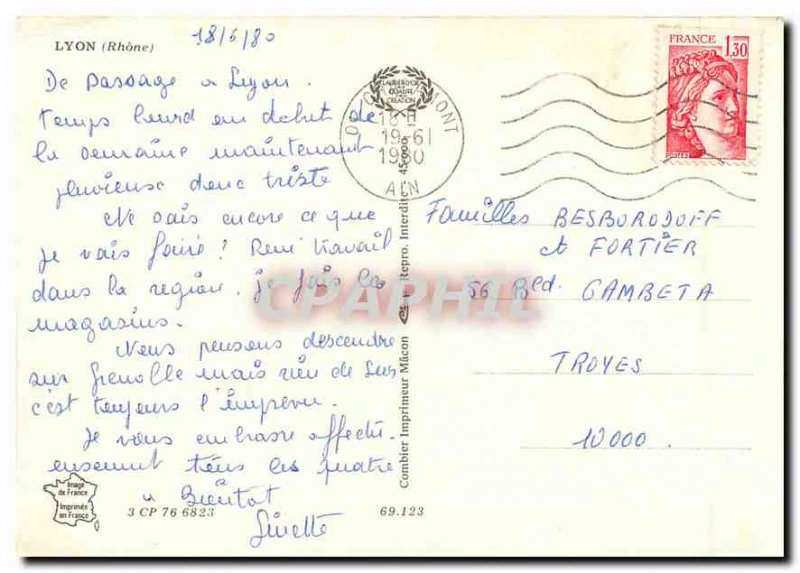 LYON (Rhône)
18/6/80
De passage a Lyon.
temps lourd en debut de
la semaine maintenant
pluvieuse donc triste
Ne sais encore ce que
je vais faire! René travail
dans la region. je fais les
magasins.
Nous pensons descendre
sur Grenoble mais rien de sur
c'est toujours l'imprevu.
Je vous embrasse affectu-
eusement tous les quatre
a Bientot
Ginette
Image
de France
Imprimée
en France
3 CP 76 6823
69.123
Combier Imprimeur Mâcon
Repro. Interdite
45.000
LABEL D'OR
QUALITÉ
CRÉATION
MONT
18 H
19-6
1980
AIN
FRANCE 1,30
POSTES
Familles BESBORODOFF
et FORTIER
56 Bed. GAMBETA
TROYES
10000.
CPAPHIL